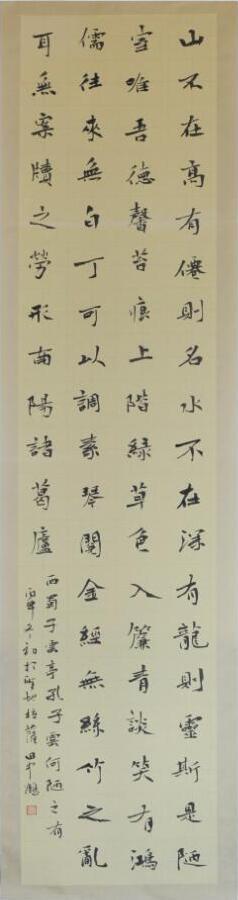 山不在高有僊則名水不在深有龍則靈斯是陋
室唯吾德馨苔痕上階綠草色入簾青談笑有鴻
儒往來無白丁可以調素琴閱金經無絲竹之亂
耳無案牘之勞形南陽諸葛廬
西蜀子雲亭孔子雲何陋之有
丙申初於聖地拉薩